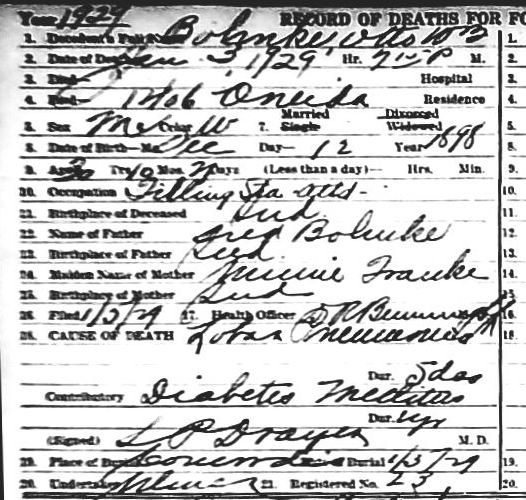 Year 1929 RECORD OF DEATHS FOR FO
1. Decedent's Full Name Bohnke Otto Wm 1.
2. Date of Death Jan 3, 1929 Hr. P M. 2.
3. Died Hospital 3.
4. Died 1406 Oneida Residence 4.
5. Sex M Color W 7. Married Single Divorced Widowed 5.
8. Date of Birth—Mo Dec Day— 12 Year 1898 8.
9. Age 30 Yrs. Mos. Days (Less than a day)— Hrs. Min. 9.
10. Occupation Filling Sta Attd - 10.
11. Birthplace of Deceased Ind 11.
12. Name of Father Fred Bohnke 12.
13. Birthplace of Father Ind 13.
14. Maiden Name of Mother Minnie Franke 14.
15. Birthplace of Mother Ind 15.
16. Filed 1/3/29 17. Health Officer 16.
18. CAUSE OF DEATH Lobar Pneumonia 18.
Dur. 5 das
Contributory Diabetes Mellitus
Dur. 1 yr
(Signed) L P Drayer M. D.
19. Place of Burial Concordia Burial 1/5/29 19.
20. Undertaker 21. Registered No. 23 20.